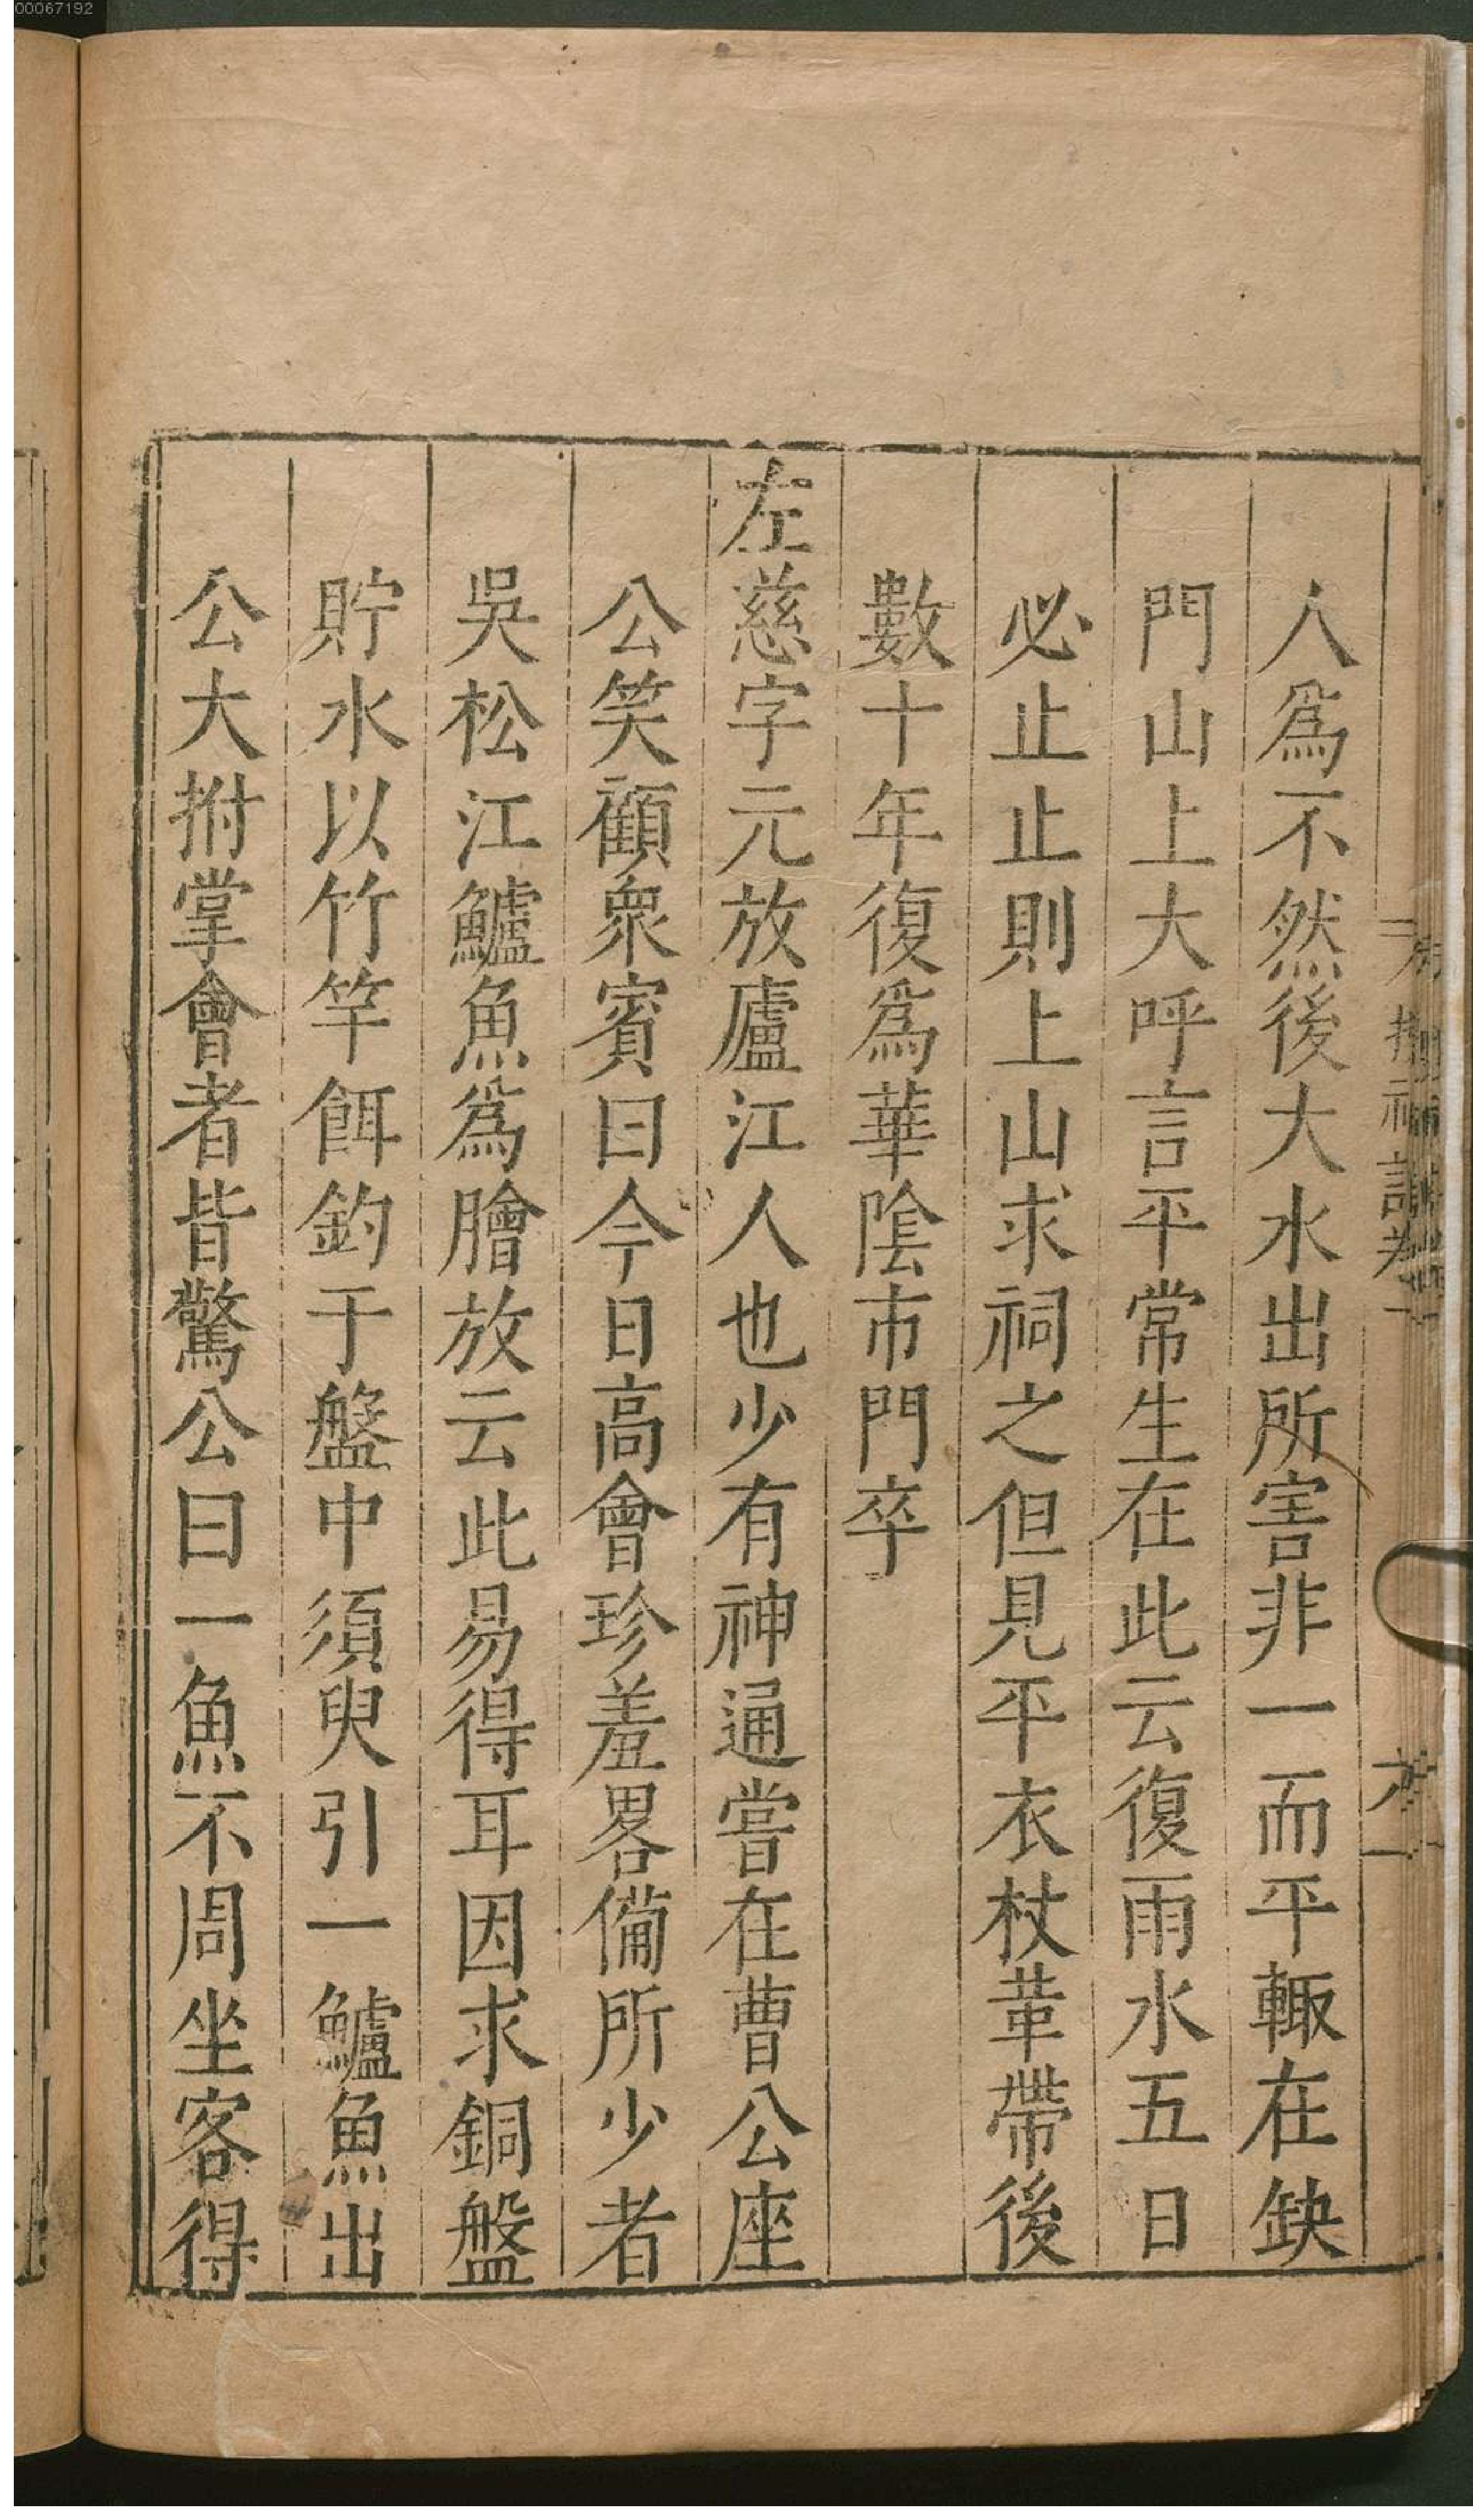 00067192
人爲不然後大水出所害非一而平輙在缺
門山上大呼言平常生在此云復雨水五日
必止止則上山求祠之但見平衣杖革帶後
數十年復爲華陰市門卒
左慈字元放廬江人也少有神通嘗在曹公座
公笑顧衆賓曰今日高會珍羞畧備所少者
吳松江鱸魚爲膾放云此易得耳因求銅盤
貯水以竹竿餌釣于盤中須臾引一鱸魚出
公大拊掌會者皆驚公曰一魚不周坐客得